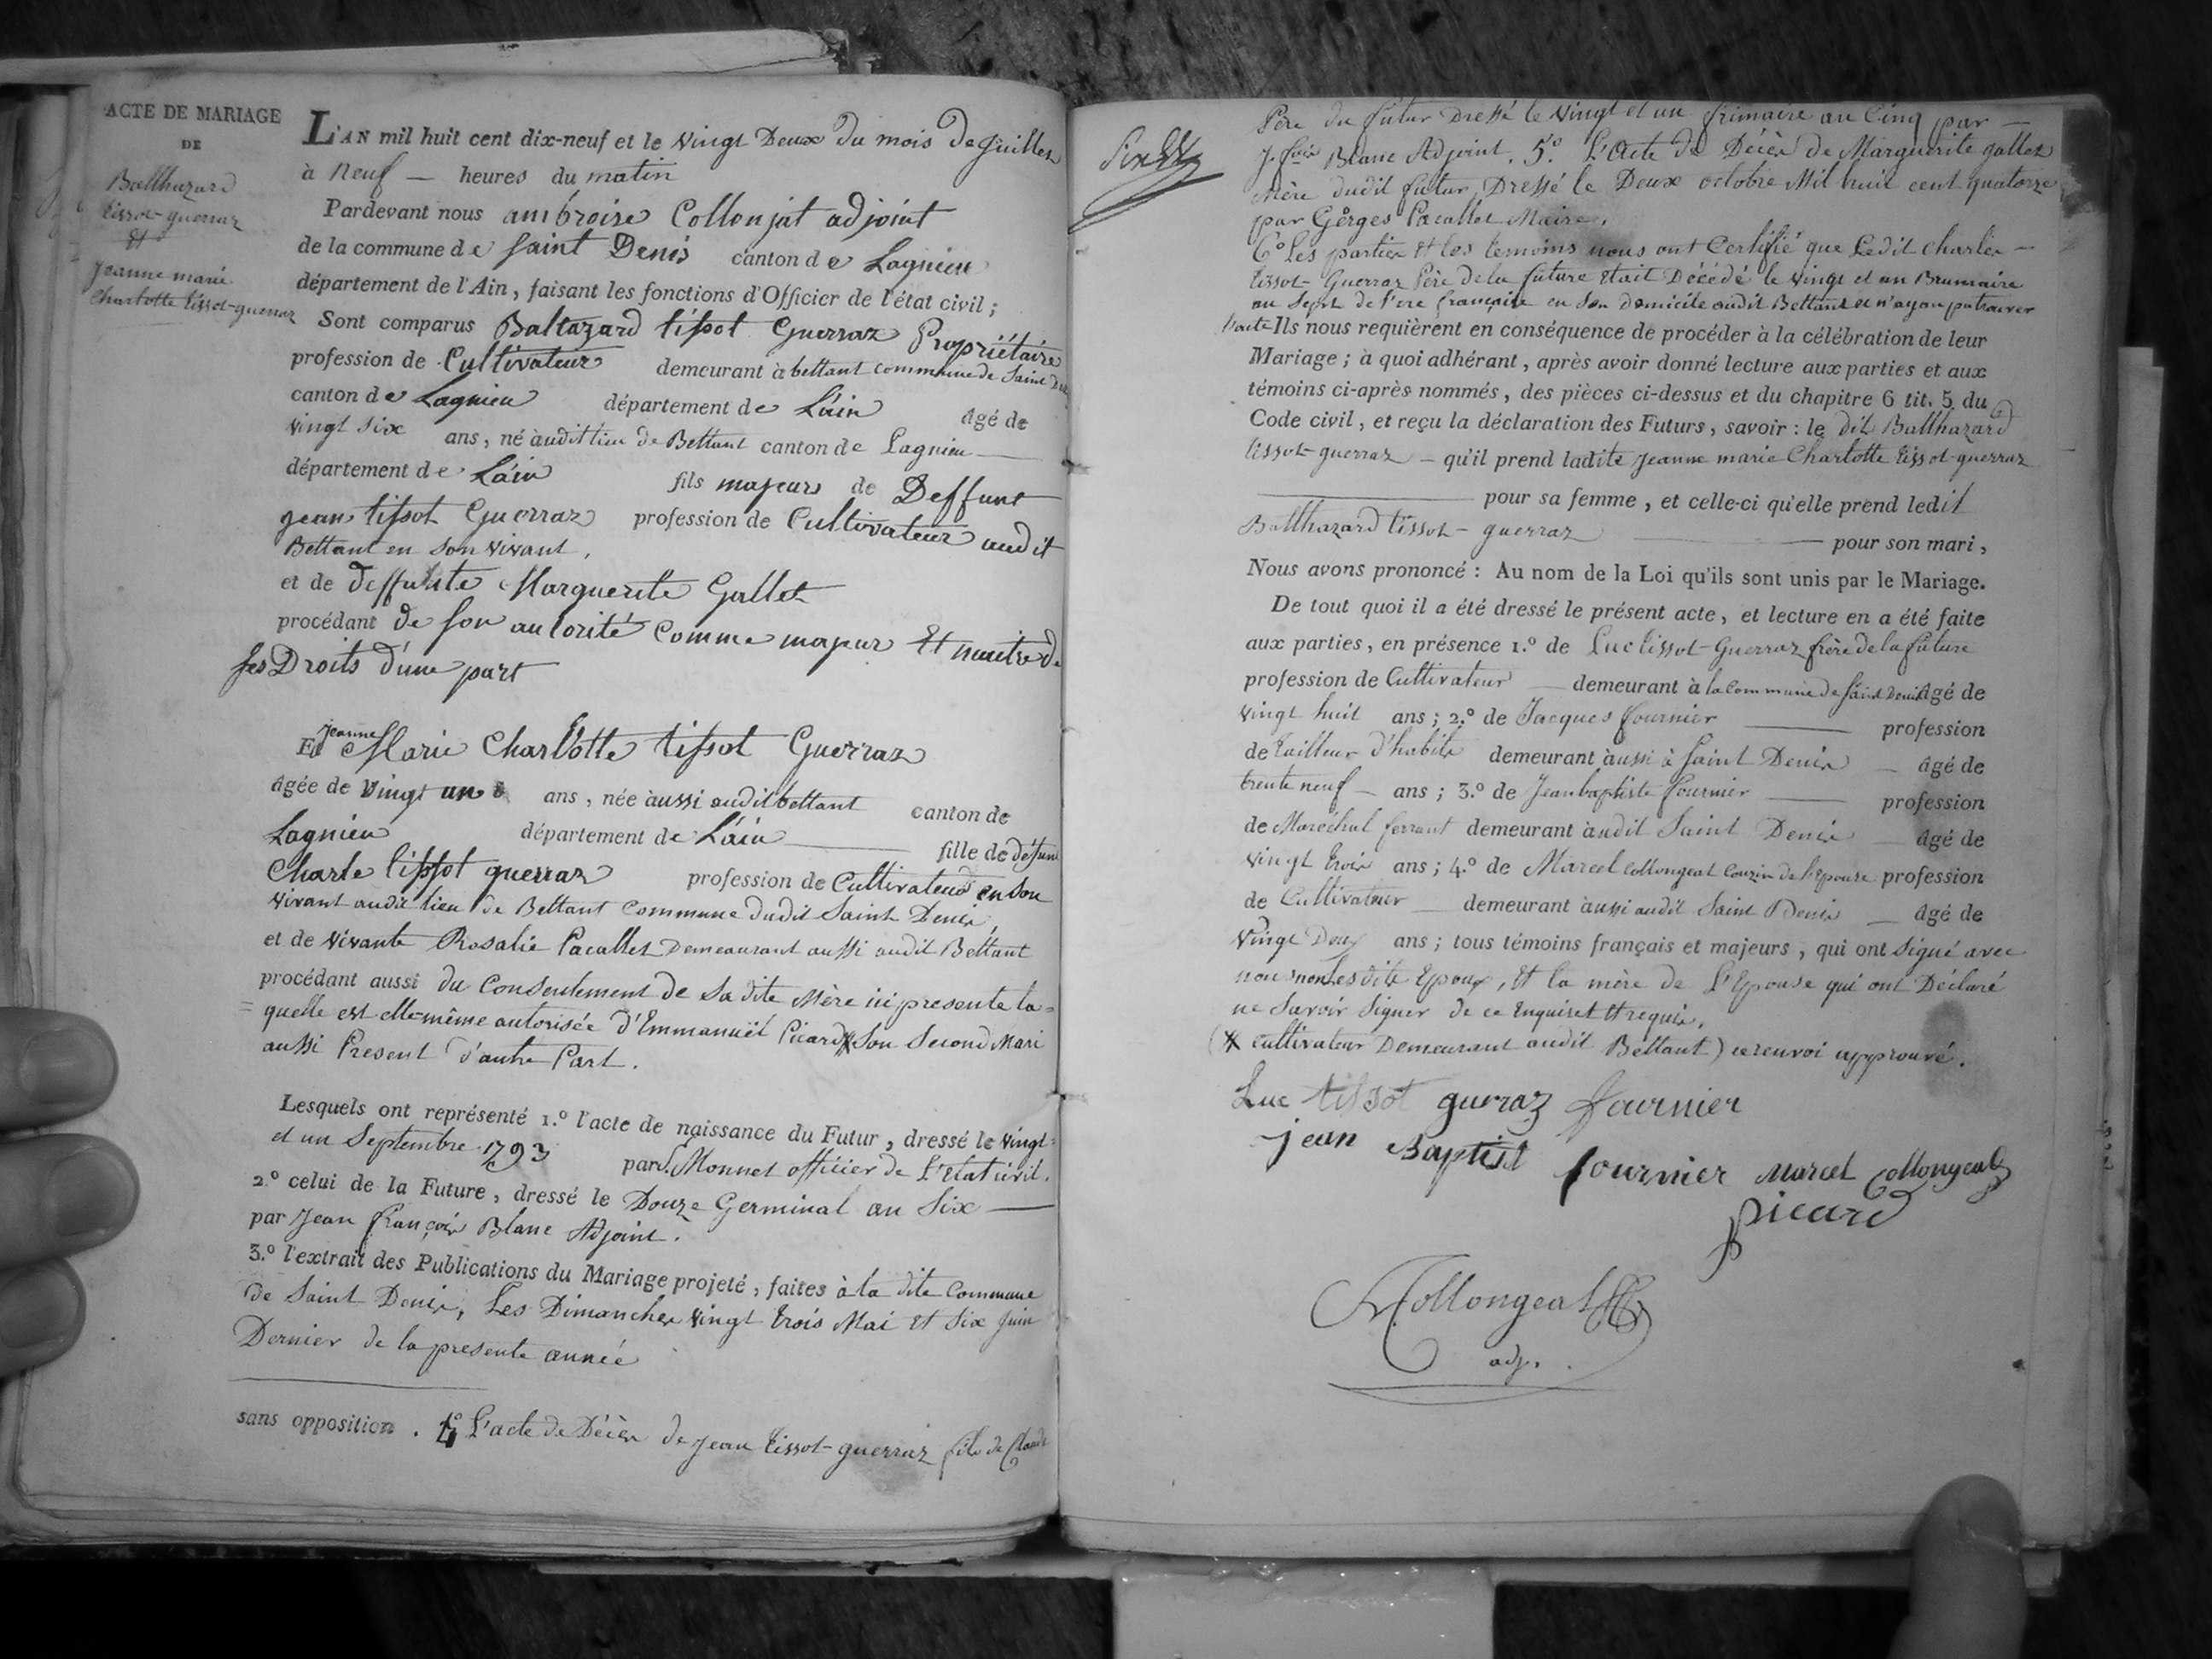 ACTE DE MARIAGE
DE
Balthazard
tissot-guerraz
Et
Jeanne marie
Charlotte tissot-guerraz
L'AN mil huit cent dix-neuf et le vingt Deux du mois de Juillet
à neuf — heures du matin
Pardevant nous ambroise Collonjat adjoint
de la commune de Saint Denis canton de Lagnieu
département de l'Ain, faisant les fonctions d'Officier de l'état civil ;
Sont comparus Baltazard tissot Guerraz Propriétaire
profession de Cultivateur demeurant à bettant commune de Saint Denis
canton de Lagnieu département de L'ain âgé de
vingt six ans, né audit lieu de Bettant canton de Lagnieu —
département de L'ain fils majeur de Deffunt
jean tissot Guerraz profession de Cultivateur audit
Bettant en son vivant,
et de deffunte Marguerite Gallet
procédant de son autorité comme majeur Et maitre de
ses Droits d'une part
Et jeanne Marie Charlotte tissot Guerraz
âgée de vingt un ans, née aussi audit bettant canton de
Lagnieu département de L'ain — fille de défunt
Charle tissot guerraz profession de Cultivateur en son
vivant audit lieu de Bettant Commune dudit Saint Denis,
et de vivante Rosalie Pacallet Demeaurant aussi audit Bettant
procédant aussi du Consentement de Sa dite Mère ici presente la=
=quelle est elle-même autorisée d'Emmanuël Picard * Son Second Mari
aussi Present d'autre Part.
Lesquels ont représenté 1.º l'acte de naissance du Futur, dressé le vingt=
et un Septembre 1793 par J. Monnet officier de L'état civil.
2.º celui de la Future, dressé le Douze Germinal an Six —
par Jean françois Blanc Adjoint.
3.º l'extrait des Publications du Mariage projeté, faites à la dite Commune
de Saint Denis, Les Dimanches vingt trois Mai et Six Juin
Dernier de la presente année
sans opposition. 4º L'acte de Décès de Jean tissot-guerraz fils de Claude
Père du futur Dressé le vingt et un frimaire an Cinq par —
J. fois Blanc Adjoint. 5.º L'Acte de Décès de Marguerite gallet
Mère dudit futur, Dressé le Deux octobre Mil huit cent quatorze
par Gorges Pacallet Maire.
6º Les parties Et les temoins nous ont Certifié que Ledit charles —
tissot-Guerraz Père de la future Etait Décédé le vingt et un Brumaire
an Sept de l'ere française en Son Domicile audit Bettant et n'ayan pu trouver
Ils nous requièrent en conséquence de procéder à la célébration de leur
Mariage ; à quoi adhérant, après avoir donné lecture aux parties et aux
témoins ci-après nommés, des pièces ci-dessus et du chapitre 6 tit. 5 du
Code civil, et reçu la déclaration des Futurs, savoir : le dit Balthazard
tissot-guerraz — qu'il prend ladite jeanne marie Charlotte tissot-guerraz
— pour sa femme, et celle-ci qu'elle prend ledit
Balthazard tissot-guerraz — pour son mari,
Nous avons prononcé : Au nom de la Loi qu'ils sont unis par le Mariage.
De tout quoi il a été dressé le présent acte, et lecture en a été faite
aux parties, en présence 1.º de Luc tissot-Guerraz frère de la future
profession de Cultivateur — demeurant à la commune de Saint Denis âgé de
vingt huit ans ; 2.º de Jacques fournier — profession
de tailleur d'habits demeurant aussi à Saint Denis — âgé de
trente neuf — ans ; 3.º de Jean baptiste fournier — profession
de Maréchal ferrant demeurant audit Saint Denis — âgé de
vingt trois ans ; 4.º de Marcel Collongeat Couzin de l'Epouse profession
de Cultivateur — demeurant aussi audit Saint Denis — âgé de
vingt Deux ans ; tous témoins français et majeurs, qui ont Signé avec
nous non Lesdits Epoux, Et la mère de L'Epouse qui ont Déclaré
ne Savoir Signer de ce Enquiset Et requis.
(* cultivateur Demeurant audit Bettant) ce renvoi approuvé.
Luc tissot gueraz fournier
jean Baptist fournier Marcel Collongeat
picard
A. Collongeat
adj.